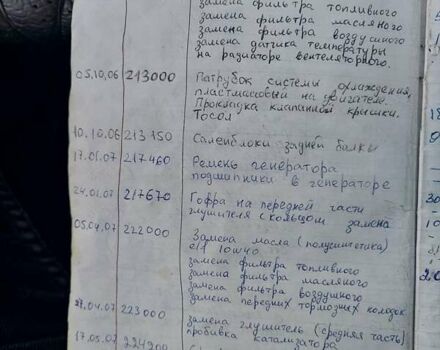 замена фильтра топливного
замена фильтра масляного
замена фильтра воздушного
замена датчика температуры
на радиаторе вентеляторного.
05.10.06 213000 Патрубок системы охлаждения,
пластмасовый на двигателе.
Прокладка клапанной крышки.
Тосол
10.10.06 213750 Саленблоки задней балки
17.01.07 217460 Ремень генератора
подшипники в генераторе
24.01.07 217670 Гофра на передней части
глушителя с кольцом замена
05.04.07 222000 Замена масла (полусинтетика)
elf 10w40
замена фильтра топливного
замена фильтра масляного
замена фильтра воздушного
замена передних тормозных колодок
27.04.07 223000
замена глушитель (средняя часть)
пробивка катализатора
17.05.07 224200